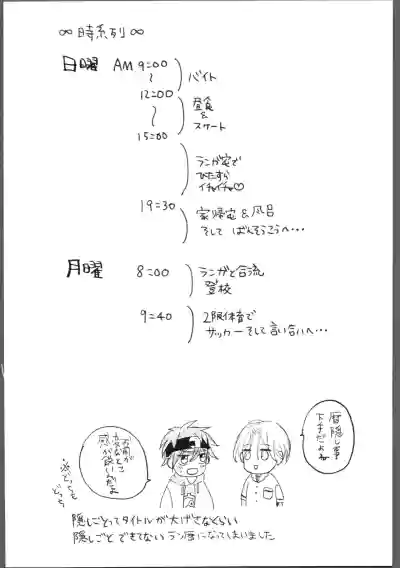 ∞ 時系列 ∞
日曜 AM 9:00
〜
バイト
12:00
〜
昼食
&
スケート
15:00
ランが宅で
ひたすら
イチャイチャ♡
19:30
家帰宅 & 風呂
そして ばんそうこうへ…
月曜 8:00
ランガと合流
登校
9:40
2限体育で
サッカー そして言い合いへ…
暦隠し事
下手だよね
お前が
変なとこ
感が鋭いんだよ
どっちも
どっち
隠しごとってタイトルが大げさなくらい
隠しごと できてない ラン暦になってしまいました